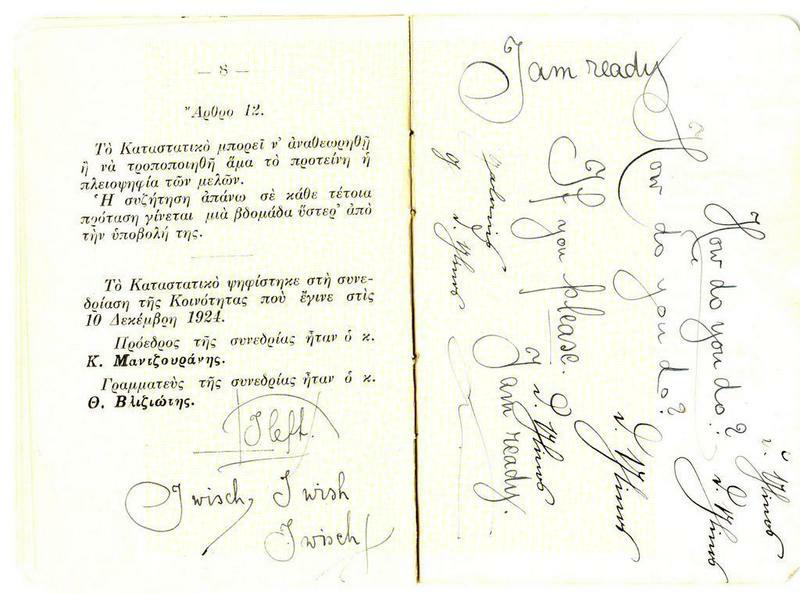 — 8 —
Ἄρθρο 12.
Τὸ Καταστατικὸ μπορεῖ ν' ἀναθεωρηθῇ
ἢ νὰ τροποποιηθῇ ἅμα τὸ προτείνῃ ἡ
πλειοψηφία τῶν μελῶν.
Ἡ συζήτηση ἀπάνω σὲ κάθε τέτοια
πρόταση γίνεται μιὰ βδομάδα ὕστερ' ἀπὸ
τὴν ὑποβολή της.
Τὸ Καταστατικὸ ψηφίστηκε στὴ συνε-
δρίαση τῆς Κοινότητας ποὺ ἔγινε στὶς
10 Δεκέμβρη 1924.
Πρόεδρος τῆς συνεδρίας ἦταν ὁ κ.
Κ. Μαντζουράνης.
Γραμματεὺς τῆς συνεδρίας ἦταν ὁ κ.
Θ. Βλιζιώτης.
I left.
I wisch, I wish
I wisch
I am ready
How do you do?
How do you do?
If you please.
I am ready.